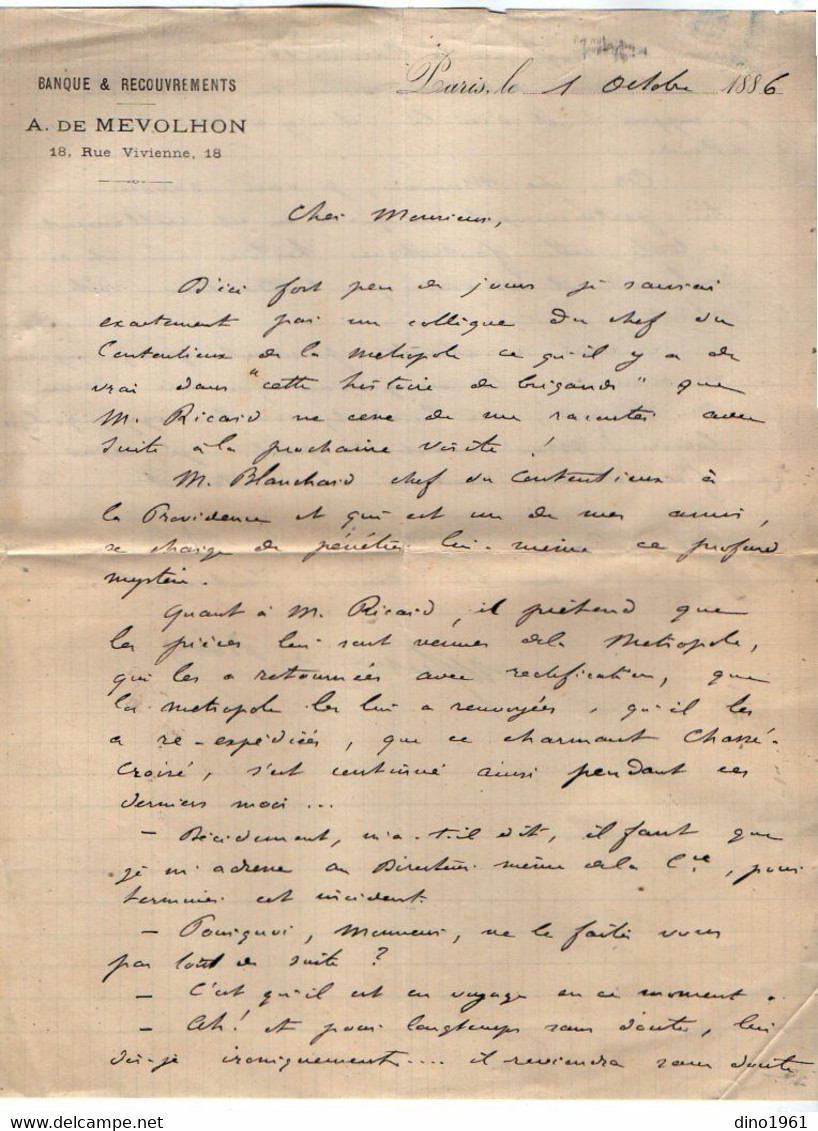 BANQUE & RECOUVREMENTS
A. DE MEVOLHON
18, Rue Vivienne, 18
Paris, le 1 Octobre 1886
Cher Monsieur,
D'ici fort peu de jours je saurai
exactement par un collègue du chef du
Contentieux de la Métropole ce qu'il y a de
vrai dans "cette histoire de brigands" que
M. Ricard ne cesse de me raconter avec
suite à la prochaine visite !
M. Blanchard chef du Contentieux à
la Providence et qui est un de mes amis,
se charge de pénétrer lui-même ce profond
mystère.
Quant à M. Ricard, il prétend que
les pièces lui sont venues de la Métropole,
qui les a retournées avec rectification, que
la métropole les lui a renvoyées, qu'il les
a re-expédiées, que ce charmant Chassé-
Croisé, s'est continué ainsi pendant ces
derniers mois...
- Décidément, m'a-t-il dit, il faut que
je m'adresse au Directeur même de la Cie, pour
terminer cet incident.
- Pourquoi, Monsieur, ne le faites vous
pas tout de suite ?
- C'est qu'il est en voyage en ce moment.
- Ah! et pour longtemps sans doute, lui
dis-je ironiquement.... il reviendra sans doute
dino1961